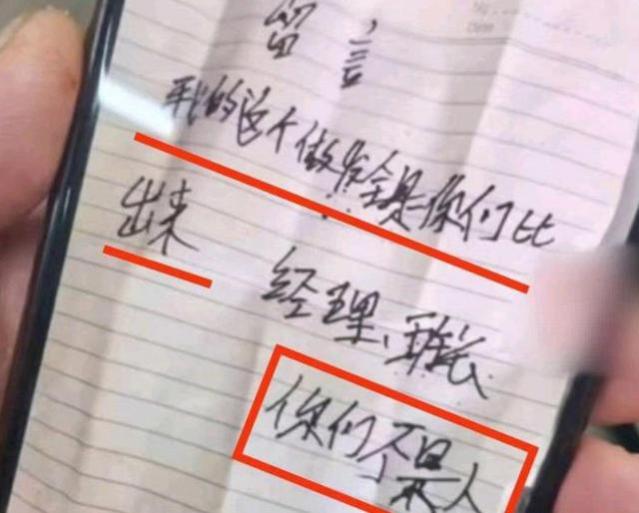 留言
我的这个做发全是你们比
出来
经理、班长
你们不是人